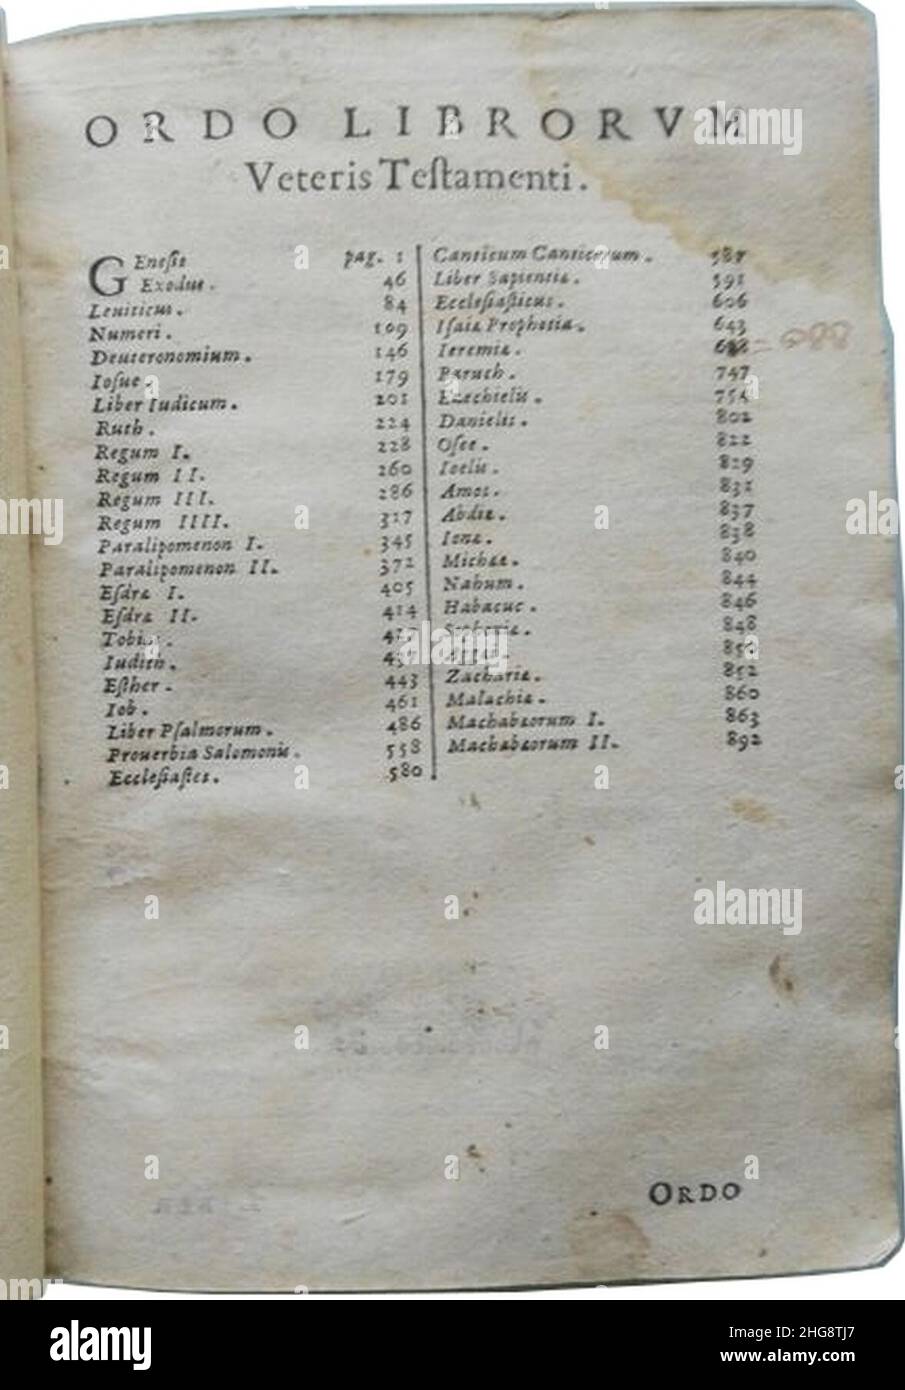 ORDO LIBRORVM
Veteris Testamenti.
GEnesis pag. 1
Exodus. 46
Leuiticus. 84
Numeri. 109
Deuteronomium. 146
Iosue. 179
Liber Iudicum. 201
Ruth. 224
Regum I. 228
Regum II. 260
Regum III. 286
Regum IIII. 317
Paralipomenon I. 345
Paralipomenon II. 372
Esdræ I. 405
Esdræ II. 414
Tobiæ.
Iudith.
Esther. 443
Iob. 461
Liber Psalmorum. 486
Prouerbia Salomonis. 558
Ecclesiastes. 580
Canticum Canticorum. 587
Liber Sapientiæ. 591
Ecclesiasticus. 606
Isaiæ Prophetia. 643
Ieremiæ. = 688
Baruch. 747
Ezechielis.
Danielis. 802
Osee. 822
Ioelis. 829
Amos. 831
Abdiæ. 837
Ionæ. 838
Micheæ. 840
Nahum. 844
Habacuc. 846
848
Aggæi.
Zachariæ. 852
Malachiæ. 860
Machabæorum I. 863
Machabæorum II. 892
ORDO
alamy
Image ID: 2HG8TJ7
www.alamy.com